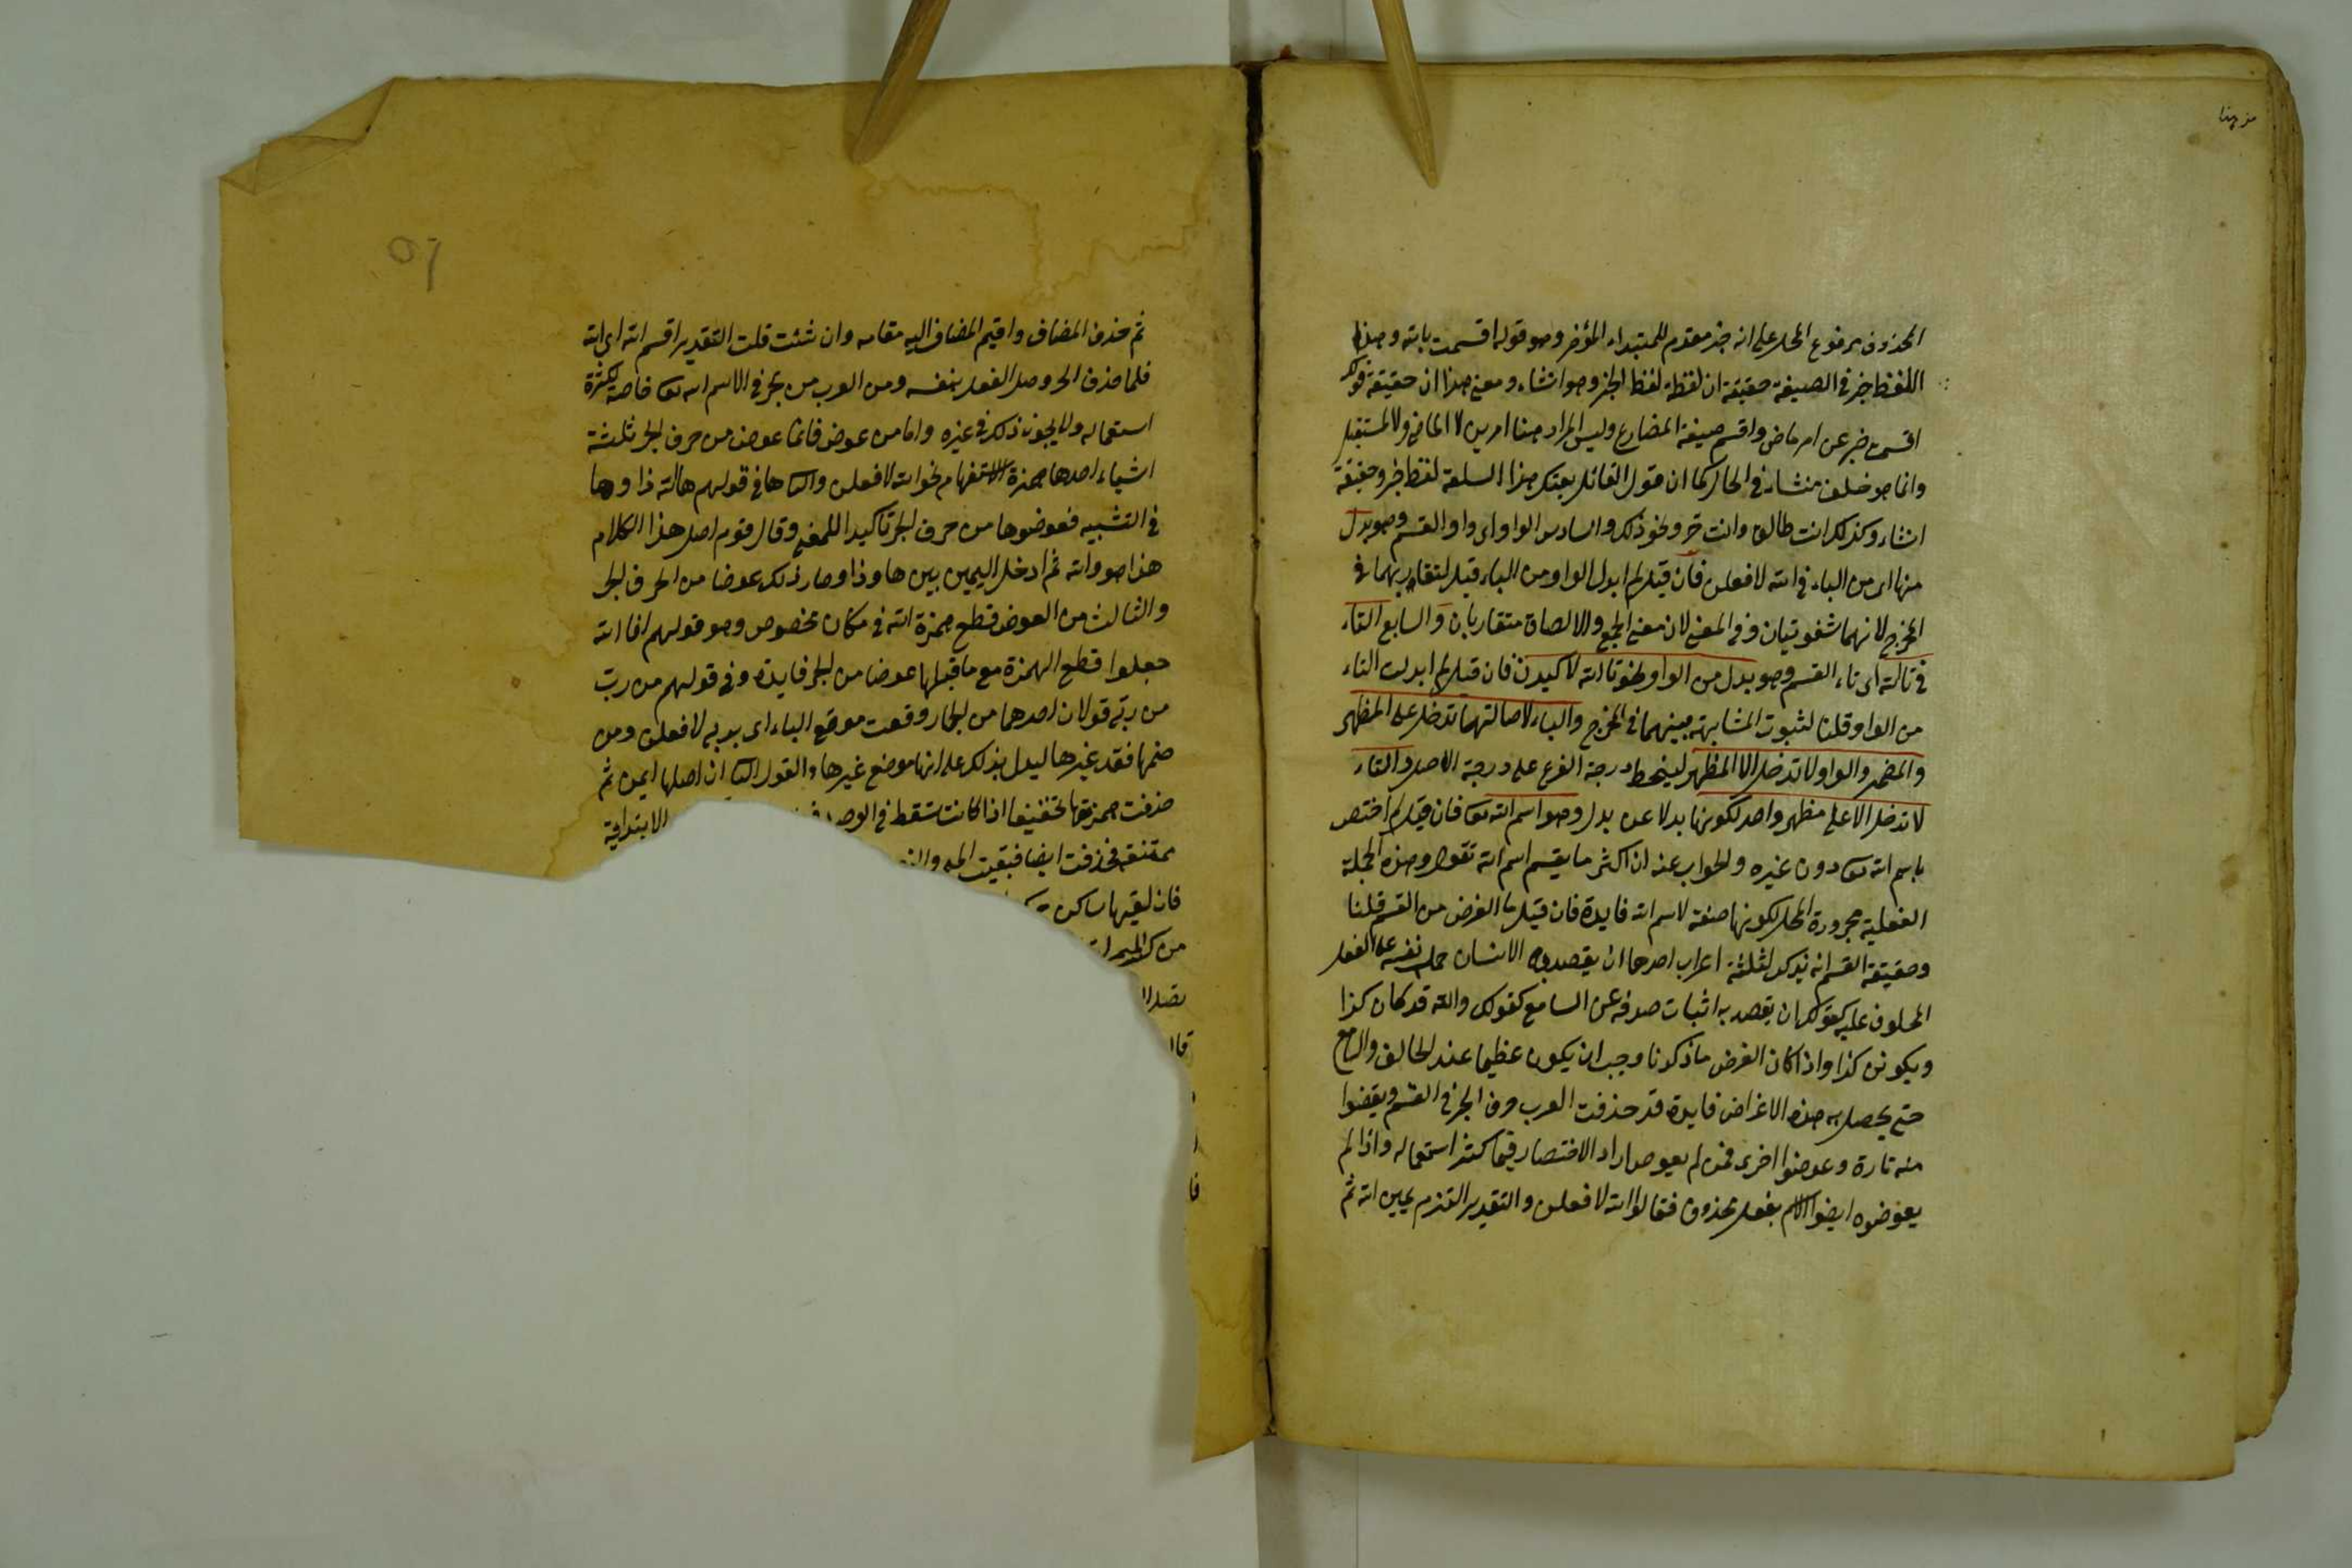 من هنا
المحذوف مرفوع المحل على انه خبر مقدم للمبتداء المؤخر وهو قوله اقسمت بالله وهذا
اللفظ خبر في الصيغة حقيقة ان لفظه لفظ الخبر وهو انشاء ومعنى هذا ان حقيقة قولك
اقسمت خبر عن امر ماض واقسم صيغة المضارع وليس المراد هنا امرين لا الماضي ولا المستقبل
وانما هو حلف منشاء في الحال كما ان قول القائل بعتك هذا السلعة لفظ خبر وحقيقة
انشاء وكذلك انت طالق وانت حر ونحو ذلك والسادس الواو اى واو القسم وهو بدل
منها اى من الباء في الله لافعلن فان قيل لم ابدل الواو من الباء قيل لتقاربهما في
المخرج لانهما شفويتان وفي المعنى لان معنى الجمع والالصاق متقاربان والسابع التاء
في تالله اى تاء القسم وهو بدل من الواو نحو تالله لاكيدن فان قيل لم ابدلت التاء
من الواو قلنا لثبوت المشابهة بينهما في المخرج والباء لاصالتهما تدخل على المظهر
والمضمر والواو لا تدخل الا المظهر لينحط درجة الفرع على درجة الاصل والتاء
لا تدخل الا على مظهر واحد لكونها بدلا عن بدل وهو اسم الله تعا فان قيل لم اختص
باسم الله تعا دون غيره والجواب عنه ان اكثر ما يقسم اسم الله تقول وهذه الجملة
الفعلية مجرورة المحل لكونها صفة لاسم الله فايدة فان قيل ما الغرض من القسم قلنا
وحقيقة القسم انه يذكر لثلثة اعراب احدها ان يقصد به الانسان حمل نفسه على الفعل
المحلوف عليه كقولك ان يقصد به اثبات صدقه عن السامع كقولك والله قد كان كذا
ويكونن كذا واذا كان الغرض ما ذكرنا وجب ان يكون عظيما عند الحالف والسامع
حتى يحصل به هذه الاغراض فايدة قد حذفت العرب حرف الجر في القسم ويقضوا
منه تارة وعوضوا اخرى فمن لم يعوض اراد الاختصار فيما كثر استعماله واذا لم
يعوضوه ايضوا الاسم بفعل محذوف فقالوا الله لافعلن والتقدير التزم يمين الله ثم
ثم حذف المضاف واقيم المضاف اليه مقامه وان شئت قلت التقدير اقسم الله اى الله
فلما حذف الحر وصل الفعل بنفسه ومن العرب من يجر في الاسم الله تعا خاصة لكثرة
استعماله ولا يجوز ذلك في غيره واما من عوض فانما عوض من حرف الجر ثلثة
اشياء احدها همزة الاستفهام نحو الله لافعلن والثا ها في قولهم هالله ذا وها
في التشبيه فعوضوها من حرف الجر تاكيد اللمعنى وقال قوم اصل هذا الكلام
هذا هو والله ثم ادخل اليمين بين ها وذا وصار ذلك عوضا من الحرف الجر
والثالث من العوض قطع همزة الله في مكان مخصوص وهو قولهم افا الله
جعلوا قطع الهمزة مع ما قبلها عوضا من الجر فايدة وفي قولهم من ربّ
من ربّه قولان احدهما من الجار وقعت موقع الباء اى بربه لافعلن ومن
ضمها فقد غيرها ليدل بذلك على انها موضع غيرها والقول الثا ان اصلها ايمن ثم
حذفت همزتها تخفيفا اذا كانت تسقط في الوصل الابتدائية
ممتنعة فحذفت ايضا فبقيت
فان لقيها ساكن
من كسر الميم
فا